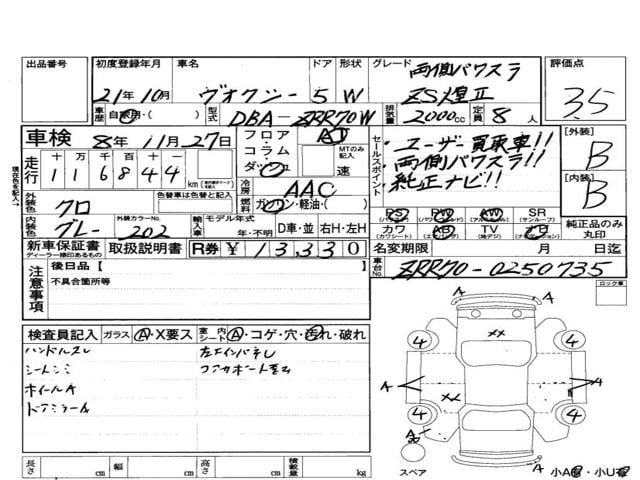 出品番号
初度登録年月
21年10月
車名
ヴオクシー
ドア 形状
5 W
グレード
両側パワスラ
ZS煌II
評価点
3.5
車歴
自家用・( )
型式
DBA-ZRR70W
排気量
2000cc
定員
8人
車検
8年11月27日
走行
十 万 千 百 十 一
1 1 6 8 4 4
km
現在色を記入→
外装色
クロ
色替車は色替前色
内装色
グレー
外装カラーNo.
202
フロア
コラム
ダッシュ
AT
MTのみ記入
速
冷房
AAC
燃料
ガソリン・軽油・( )
輸入車
モデル年式
年・不明
D車・並
右H・左H
セールスポイント
・ユーザー買取車!!
・両側パワスラ!!
・純正ナビ!!
[外装]
B
[内装]
B
PS PW AW SR
(サンルーフ)
カワ AB TV ナビ
(カワシート) (エアバッグ) (地デジ) (ナビゲーション)
純正品のみ
丸印
新車保証書
ディーラー捺印あるもの
取扱説明書
R券 ¥13,330
名変期限 月 日迄
車台No.
ZRR70-0250735
注意事項
後日品【
不具合箇所等
ロック車
検査員記入
ガラス Ⓐ・X要ス
室内シート Ⓐ・コゲ・穴・汚れ・破れ
ハンドルスレ
シートシミ
ホイールA
ドアミラーA
A
A
××
4
4
A
A
××
4
4
A
A
スペア
小A・小U
長さ cm
幅 cm
高さ cm
積載量 kg